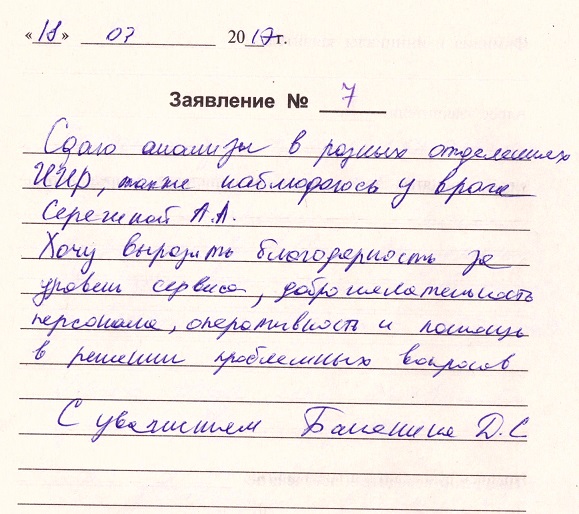 «18» 07 2017г.
Заявление № 7
Сдаю анализы в разных отделениях
ЦИР, также наблюдаюсь у врача
Сережиной А.А.
Хочу выразить благодарность за
уровень сервиса, доброжелательность
персонала, оперативность и помощь
в решении проблемных вопросов
С уважением Д.С